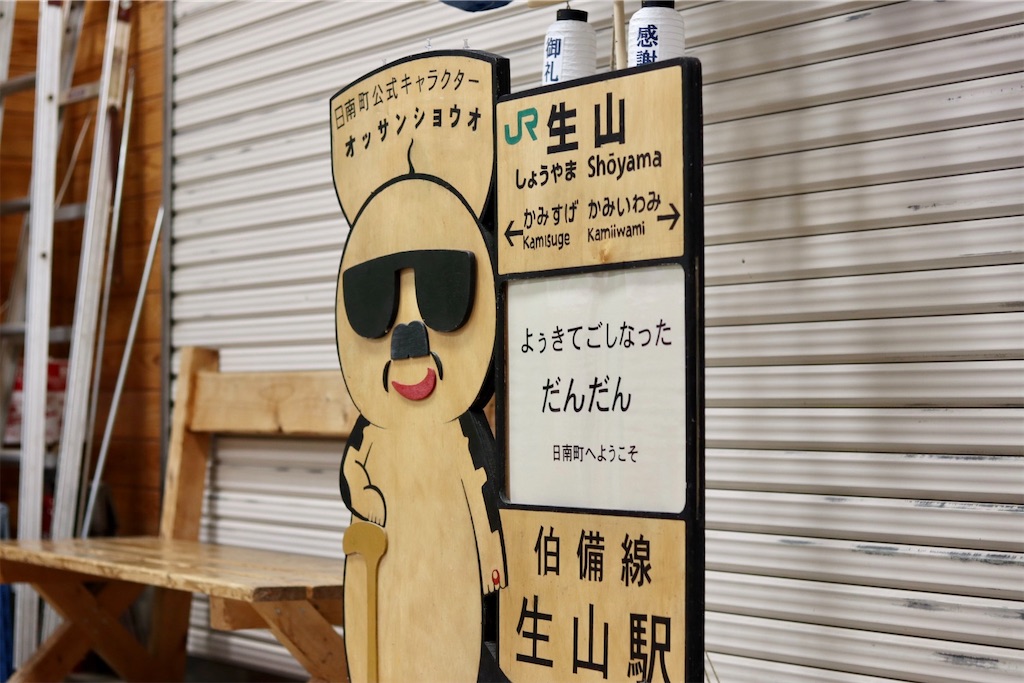 御礼
感謝
日南町公式キャラクター
オッサンショウオ
JR 生山
しょうやま Shōyama
←かみすげ かみいわみ→
Kamisuge Kamiiwami
ようきてごしなった
だんだん
日南町へようこそ
伯備線
生山駅